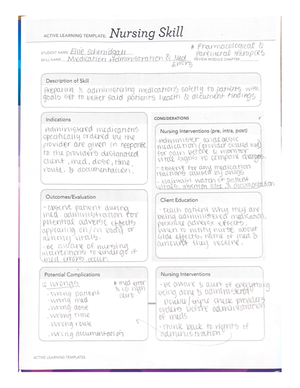 ACTIVE LEARNING TEMPLATE: Nursing Skill
STUDENT NAME Ellie Schmidgall
SKILL NAME Medication Administration & Med Errors
* Pharmaceutical & Parenteral therapies
REVIEW MODULE CHAPTER
Description of Skill
Preparing & administering medications safely to patients with
goals of to better said patients health & document findings
Indications
administered medications
specifically ordered by the
provider are given in response
to the providers diagnosed
client, med, dose, time
route, & documentation.
CONSIDERATIONS
Nursing Interventions (pre, intra, post)
medication
vital signs to compare changes
Outcomes/Evaluation
-observe patient during
med administration for
potential adverse effects
appearing on/in body or
-be aware of nursing
of med effects
Client Education
-teach patient why they are
being administered medications,
potential adverse effects,
when to notify nurse about
side effects, name of med &
amount they receive.
Potential Complications
6 wrongs:
-wrong patient
-wrong med
-wrong dose
-wrong time
-wrong route
-wrong documentation
* med error
Nursing Interventions
-be aware & alert of everything
being done & administered
-double/triple check providers
orders before administration
of meds
-think back to rights of
administration!
ACTIVE LEARNING TEMPLATES